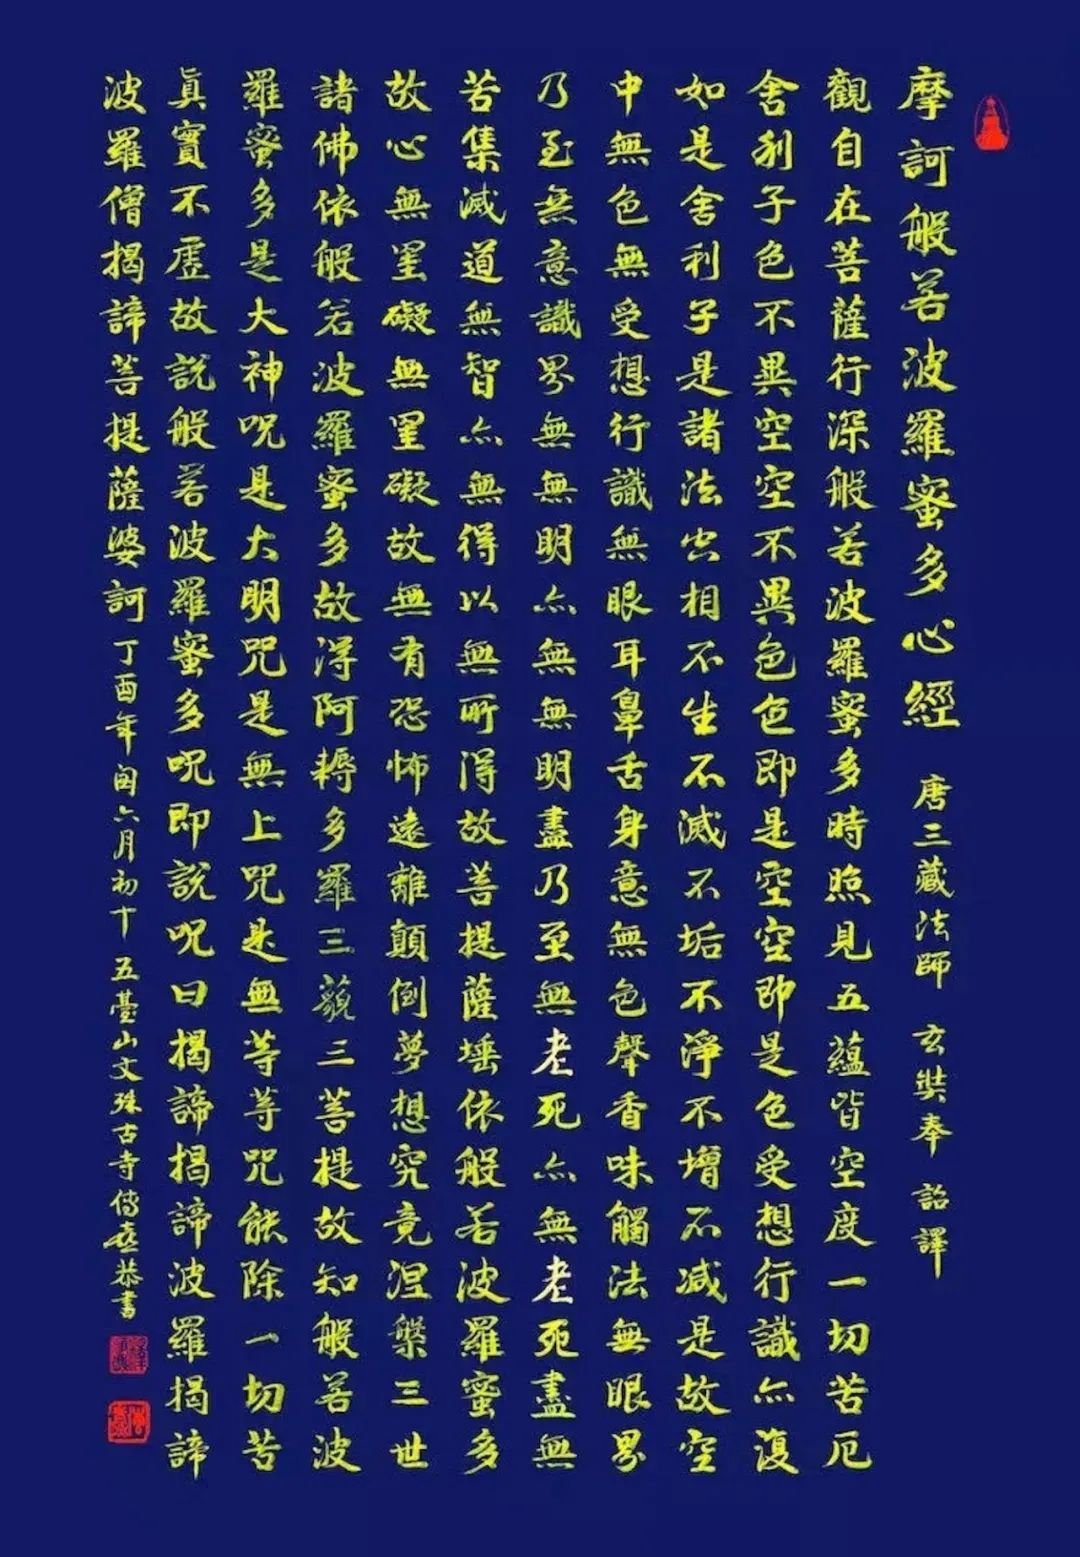 摩訶般若波羅蜜多心經 唐三藏法師 玄奘奉 詔譯
觀自在菩薩行深般若波羅蜜多時照見五蘊皆空度一切苦厄
舍利子色不異空空不異色色即是空空即是色受想行識亦復
如是舍利子是諸法空相不生不滅不垢不淨不增不減是故空
中無色無受想行識無眼耳鼻舌身意無色聲香味觸法無眼界
乃至無意識界無無明亦無無明盡乃至無老死亦無老死盡無
苦集滅道無智亦無得以無所得故菩提薩埵依般若波羅蜜多
故心無罣礙無罣礙故無有恐怖遠離顛倒夢想究竟涅槃三世
諸佛依般若波羅蜜多故得阿耨多羅三藐三菩提故知般若波
羅蜜多是大神呪是大明咒是無上咒是無等等咒能除一切苦
眞實不虛故說般若波羅蜜多呪即說呪曰揭諦揭諦波羅揭諦
波羅僧揭諦菩提薩婆訶 丁酉年閏六月初十 五臺山文殊古寺 恭書